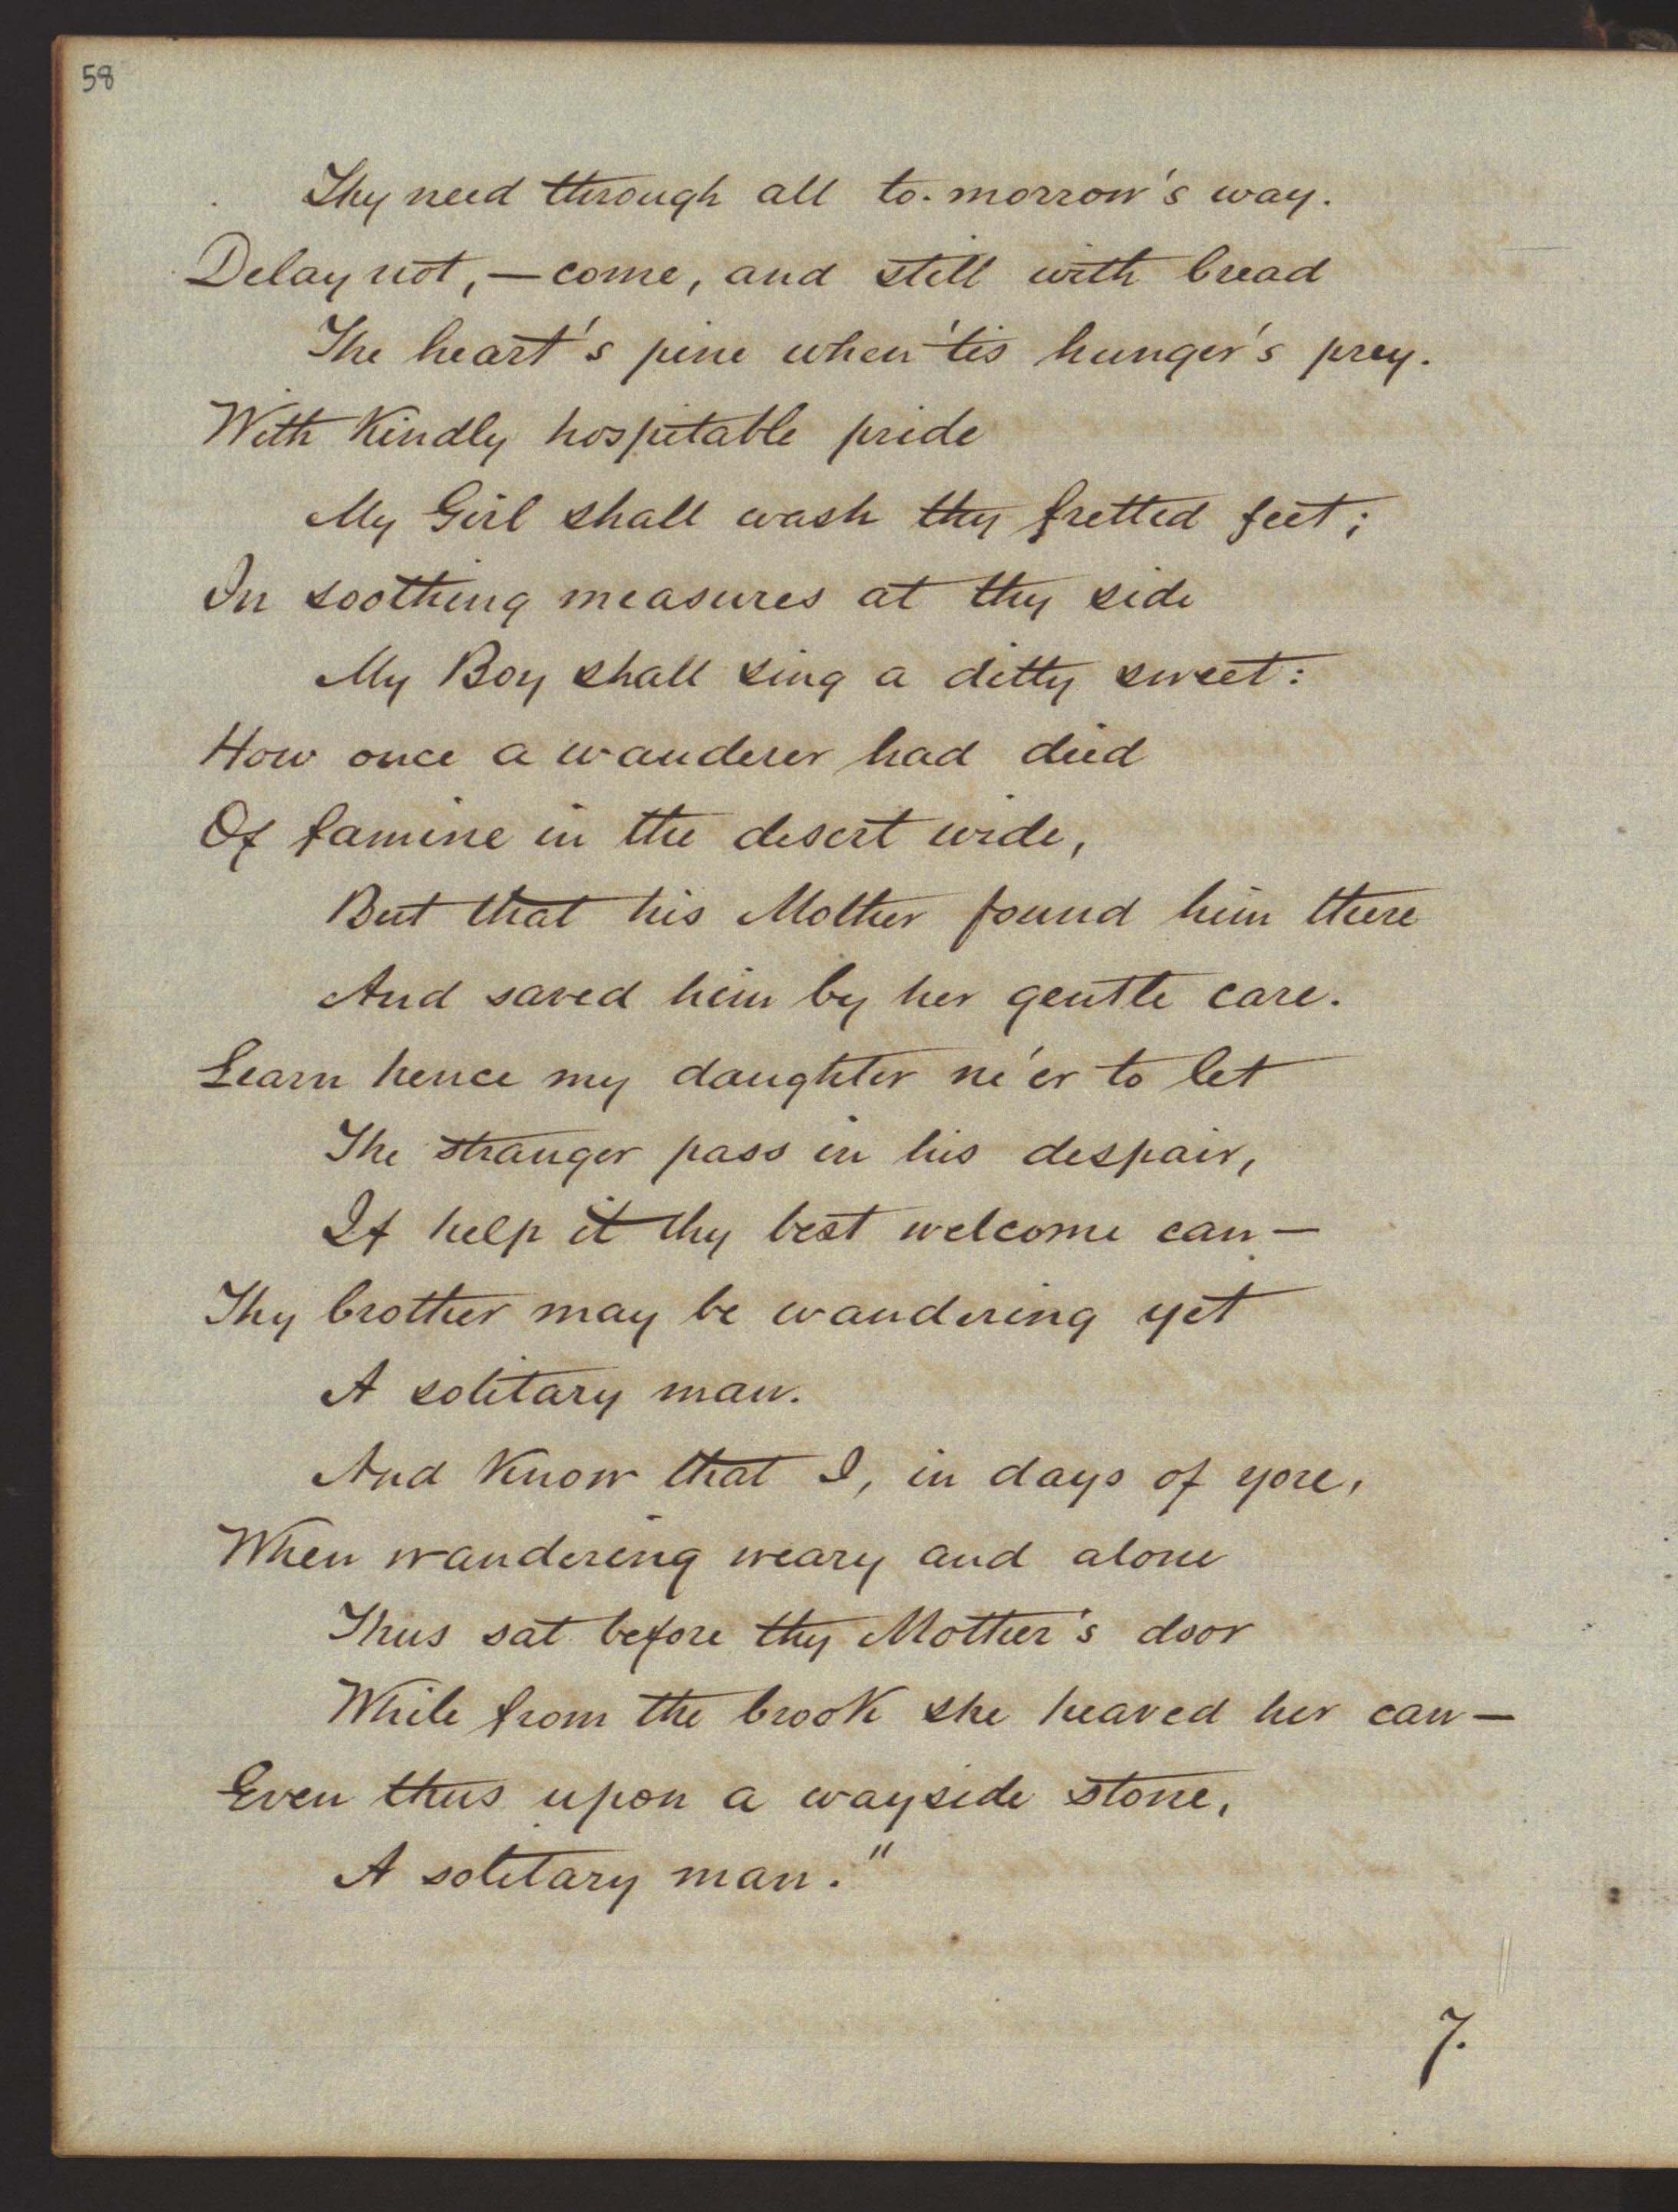 58
Thy need through all to-morrow's way.
Delay not, — come, and still with bread
The heart's pine when 'tis hunger's prey.
With kindly hospitable pride
My Girl shall wash thy fretted feet;
In soothing measures at thy side
My Boy shall sing a ditty sweet:
How once a wanderer had died
Of famine in the desert wide,
But that his Mother found him there
And saved him by her gentle care.
Learn hence my daughter ne'er to let
The stranger pass in his despair,
If help it thy best welcome can —
Thy brother may be wandering yet
A solitary man.
And know that I, in days of yore,
When wandering weary and alone
Thus sat before thy Mother's door
While from the brook she heaved her can —
Even thus upon a wayside stone,
A solitary man."
7.